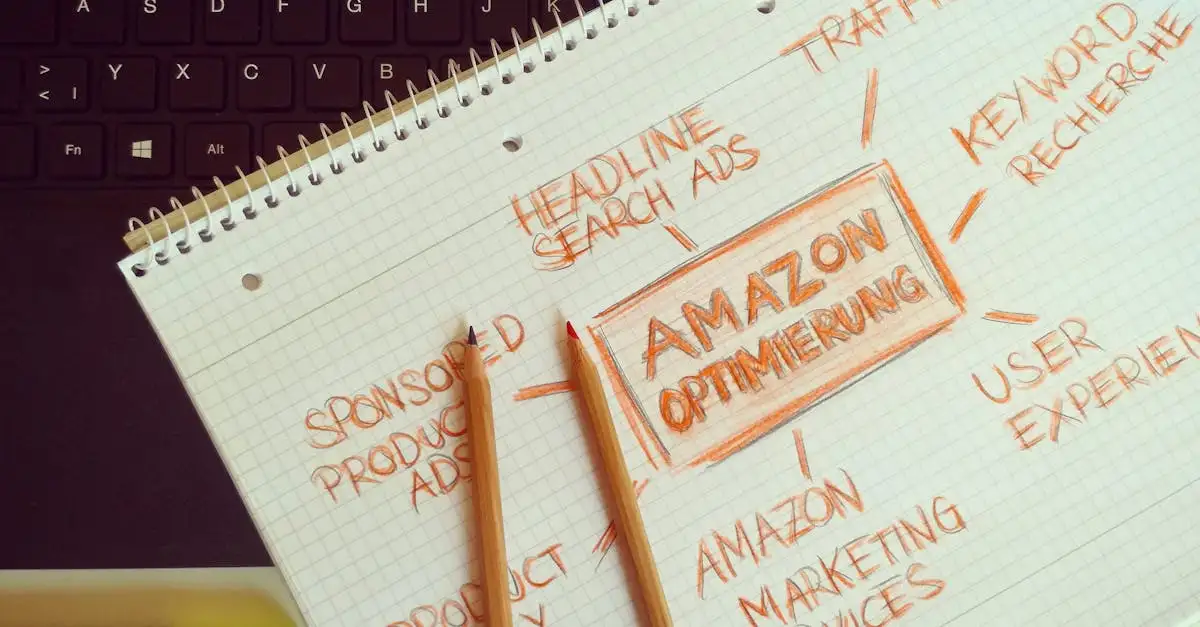 A S D F G H J K
> Y X C V B
< |
Fn Alt
TRAFFI
KEYWORD
RECHERCHE
HEADLINE
SEARCH ADS
AMAZON
OPTIMIERUNG
SPONSORED
PRODUCT
ADS
USER
EXPERIEN
AMAZON
MARKETING
PRODUCT